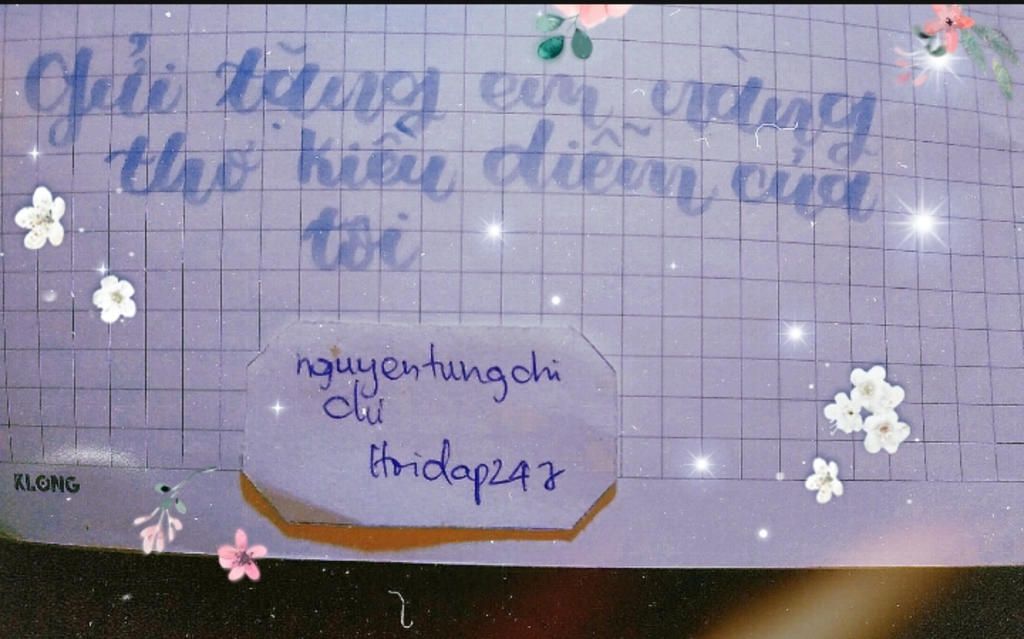 Gửi tặng em nàng
thơ kiều diễm của
tôi
nguyentungchi
chi
Hoidap247
KLONG